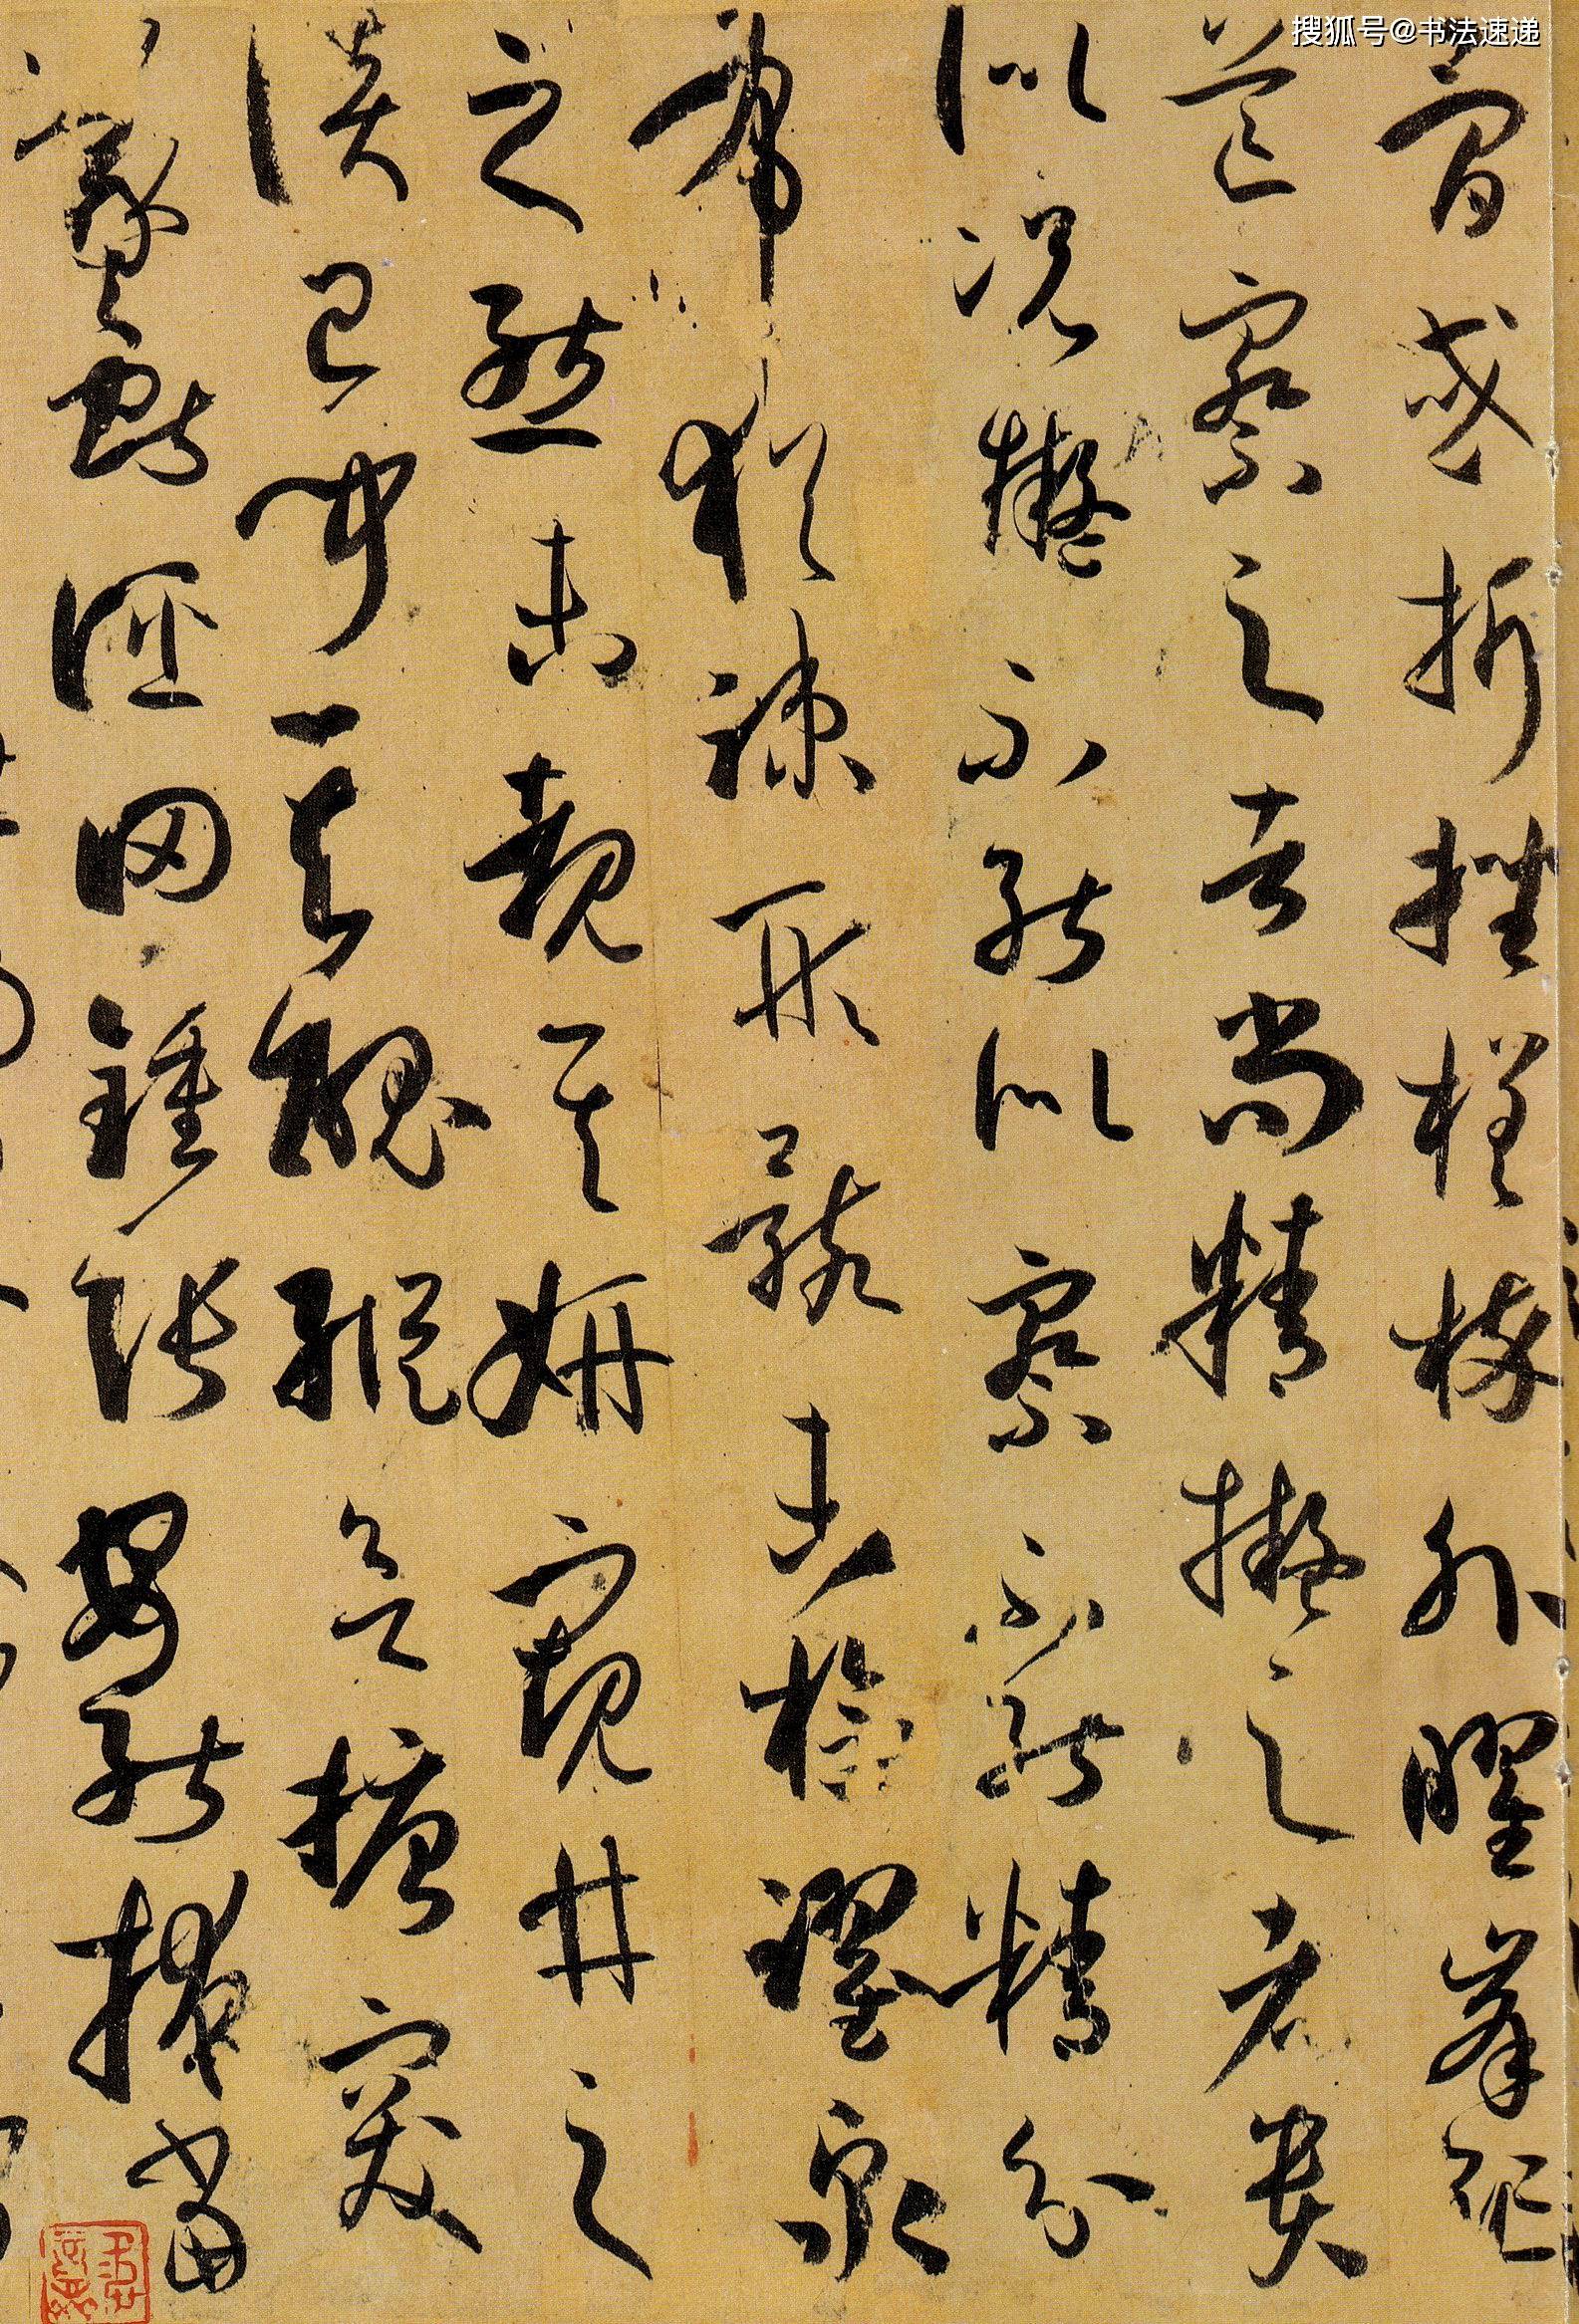 搜狐号@书法速递
骨或折挫槎枿外曜峯
芒察之者尚精擬之者貴
似況擬不能似察不能精分
布猶疎形骸未檢躍泉
之態未覩其妍窺井之
談已聞其醜縱欲搪突
羲獻誣罔鍾張安能掩當